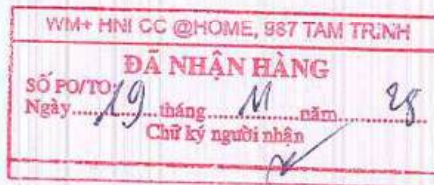 WM+ HNI CC @HOME, 987 TAM TRINH
ĐÃ NHẬN HÀNG
SỐ PO/TO:
Ngày 19 tháng 11 năm 25
Chữ ký người nhận